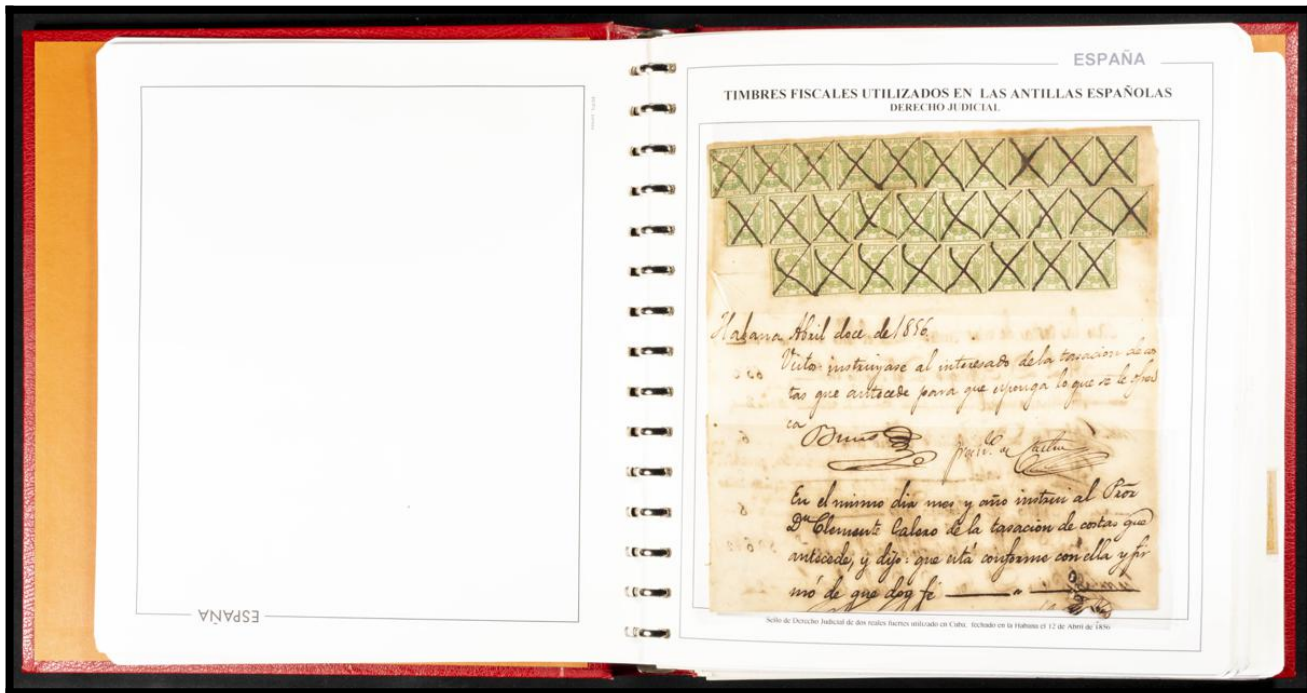 ESPAÑA
TIMBRES FISCALES UTILIZADOS EN LAS ANTILLAS ESPAÑOLAS
DERECHO JUDICIAL
Habana Abril doce de 1856
Visto: instruyase al interesado de la tasacion de cos
tas que antecede para que esponga lo que se le ofres
ca
En el mismo dia mes y año instrui al Pror
Dn Clemente Calero de la tasacion de costas que
antecede, y dijo: que está conforme con ella y fir
mó de que doy fé
Sello de Derecho Judicial de dos reales fuertes utilizado en Cuba, fechado en la Habana el 12 de Abril de 1856
ESPAÑA